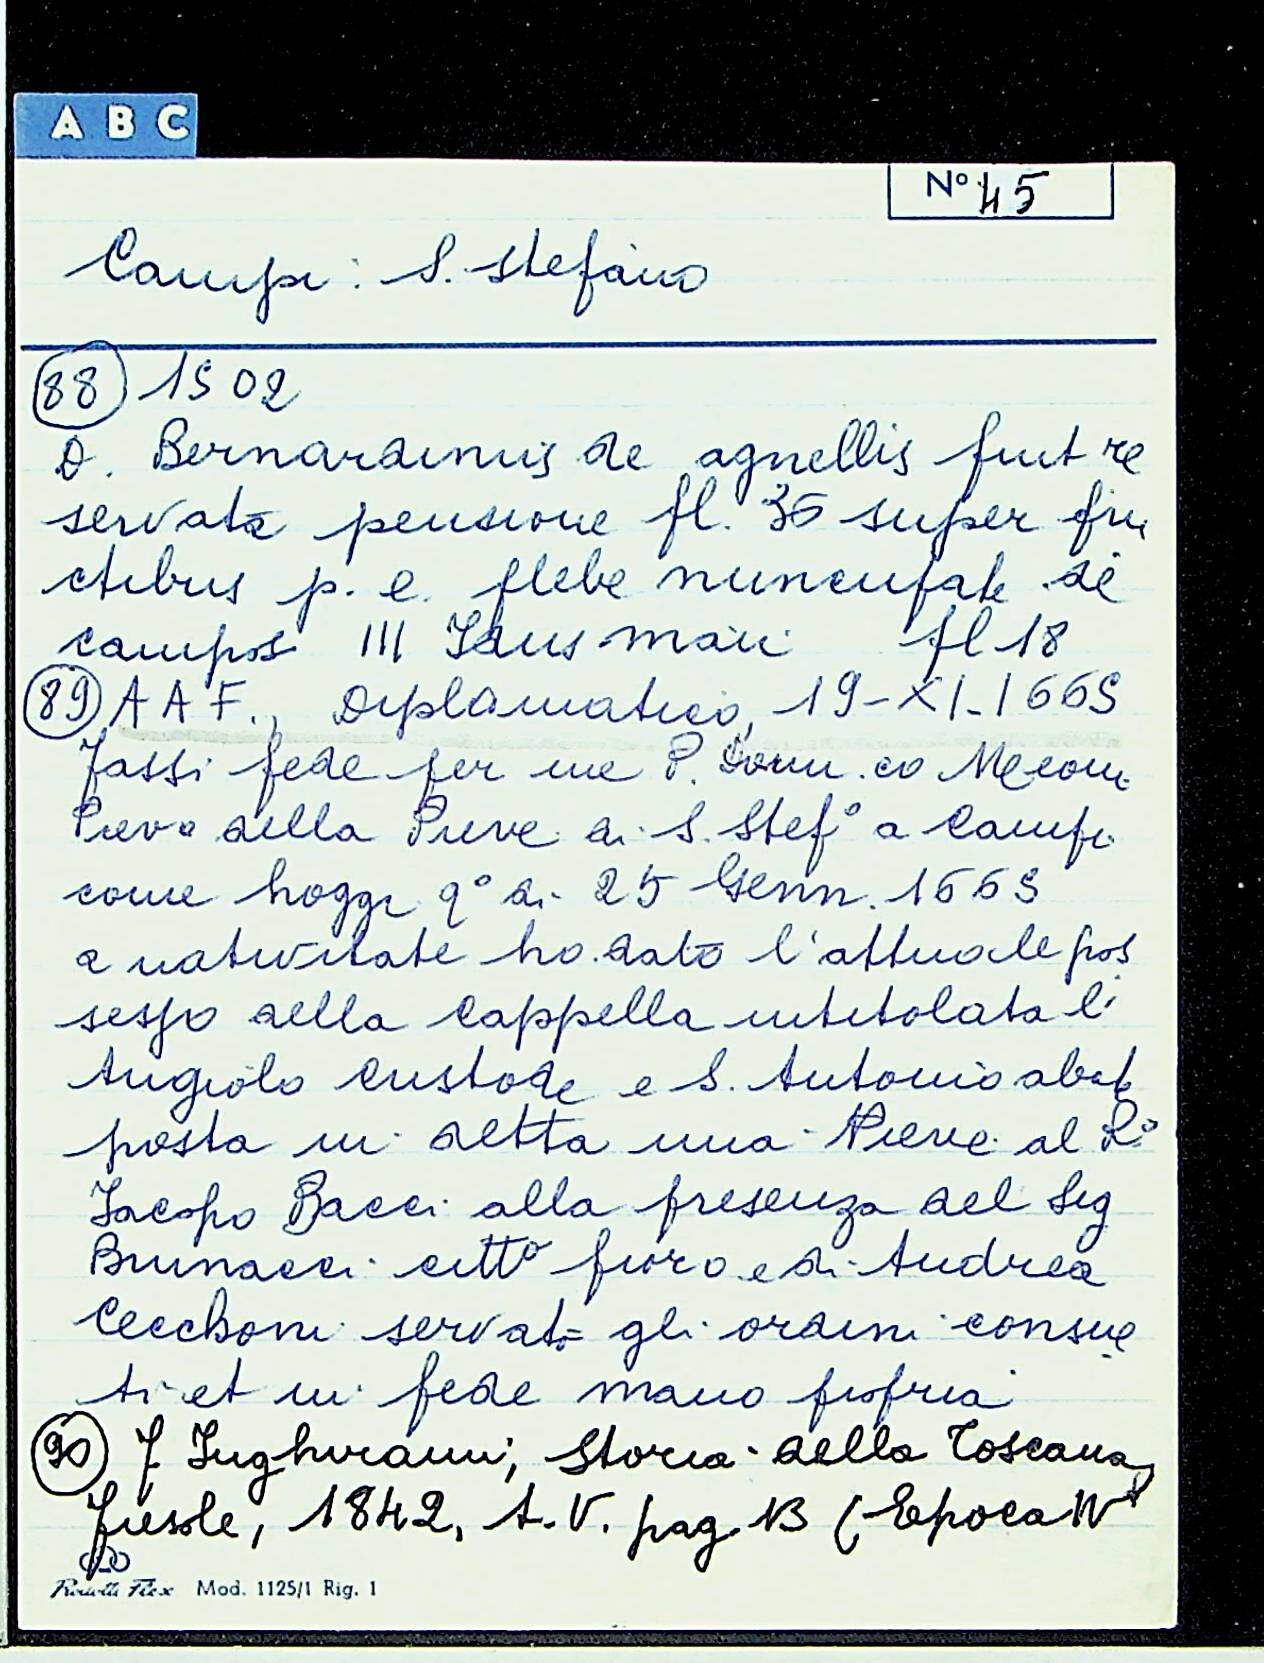 A B C
Nº 45
Campi: S. Stefano
88 1502
D. Bernardinus de agnellis fuit re
servata pensione fl. 36 super fru
ctibus p. e. plebe nuncupate de
campos III Idus maii fl 18
89 A A F., Diplomatico, 19-XI-1665
Fassi fede per me P. Dom.co
Pievo della Pieve di S. Stefº a Campi
come hoggi qº di 25 Genn. 1665
a nativitate ho dato l'attuale pos
sesso della cappella intitolata l'
Angiolo Custode e S. Antonio abate
posta in detta mia Pieve al Rº
Jacopo Bacci alla presenza del Sig
Brunacci cittº fioro e di Andrea
Cecchoni servato gli ordini consue
ti et in fede mano propria
90 F Inghirami, Storia della Toscana,
Fiesole, 1842, t. V. pag. 13 (Epoca IVª
Mod. 1125/1 Rig. 1